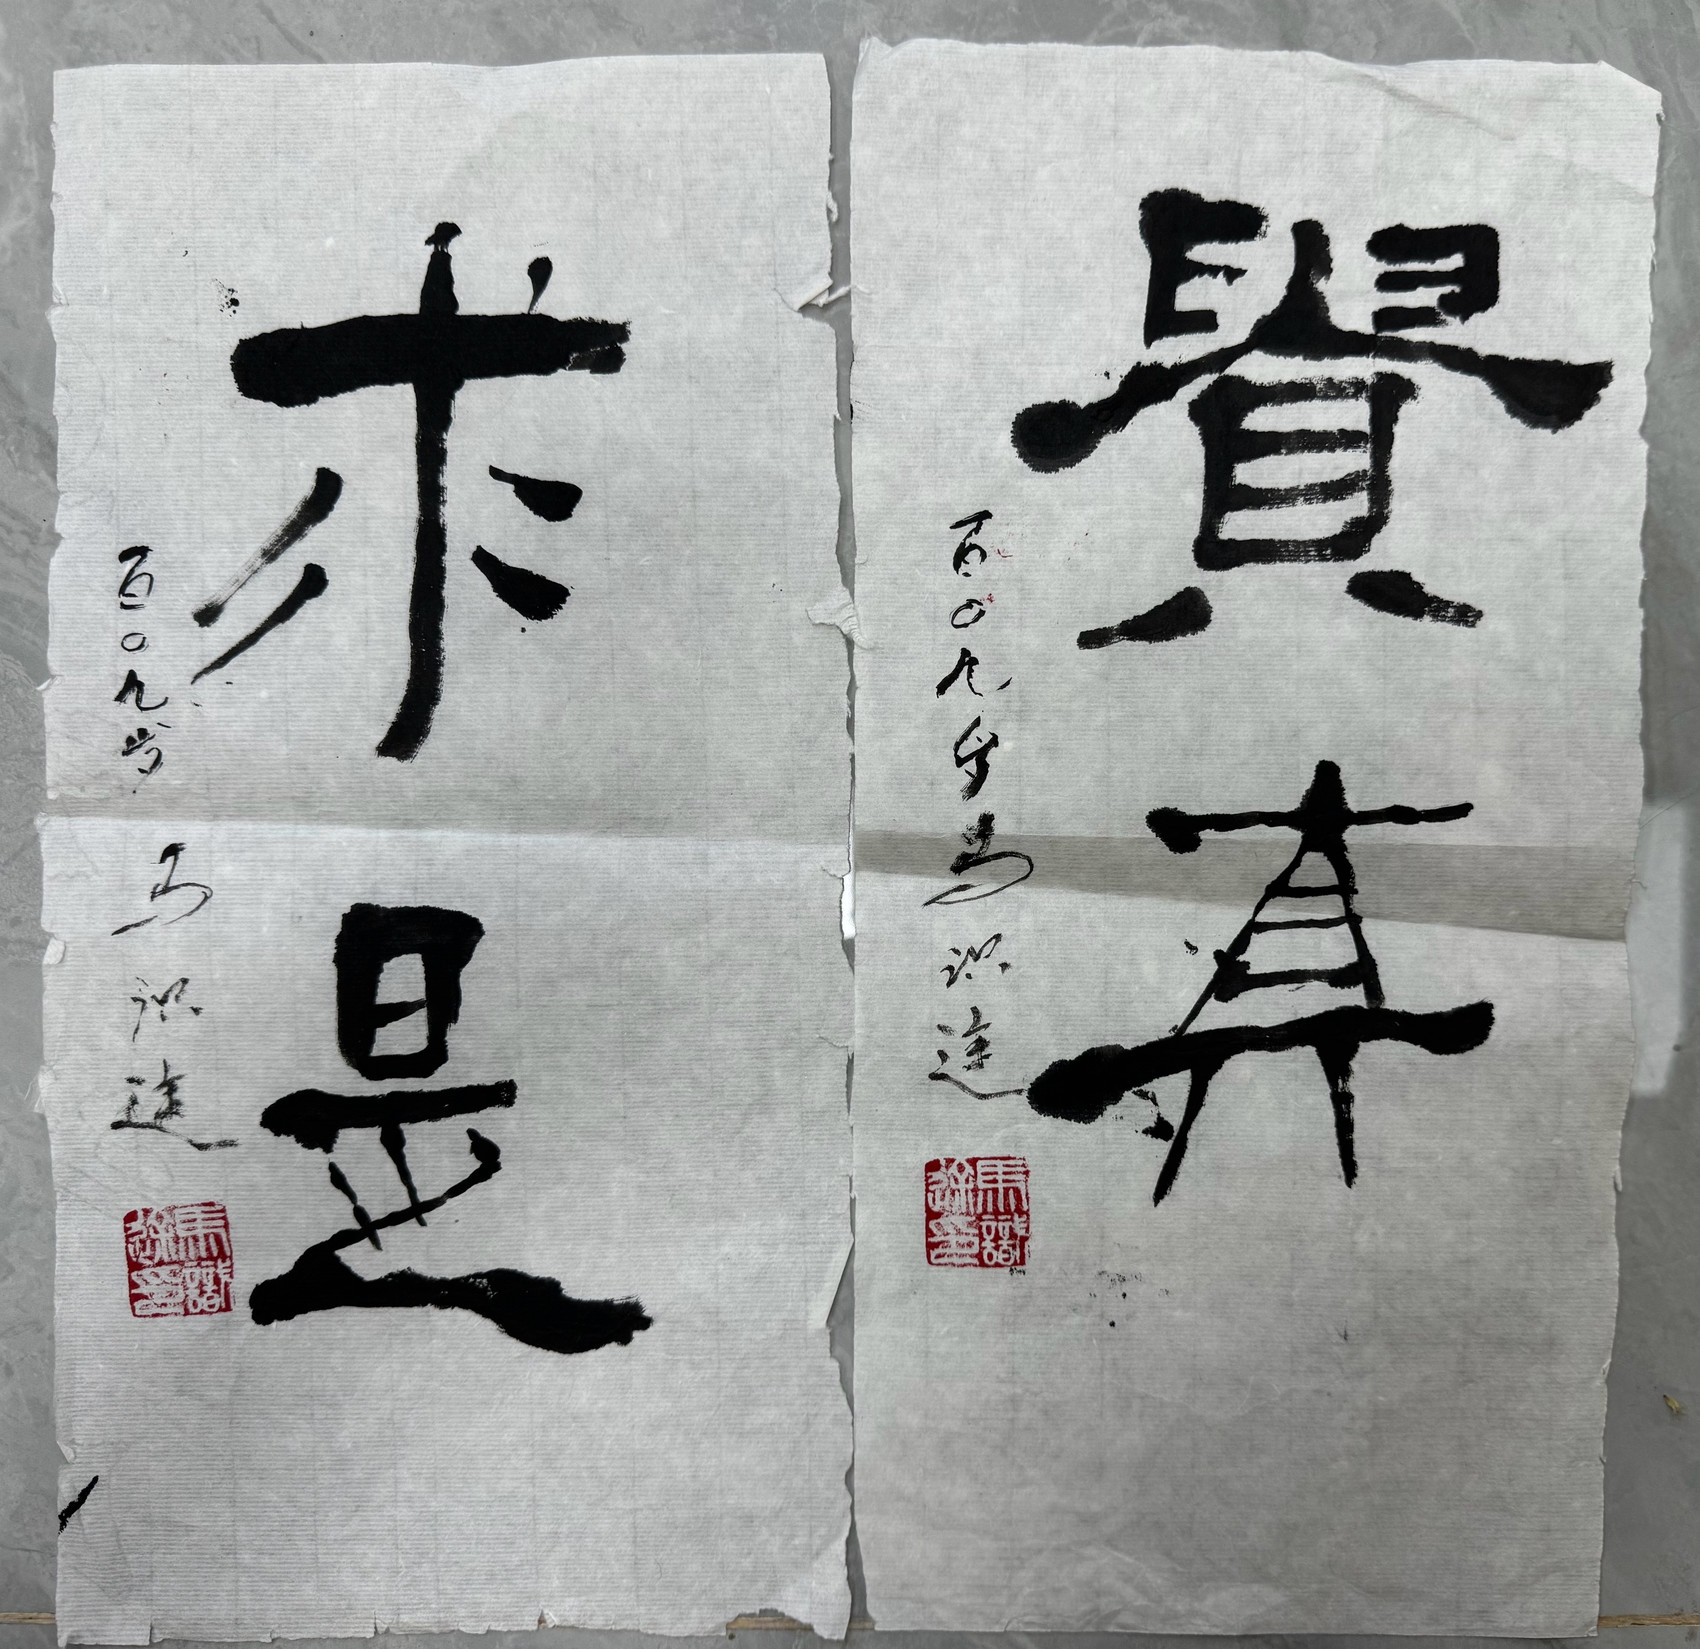 貴真
百〇九叟马识途
馬識途印
求是
百〇九岁 马识途
馬識途印